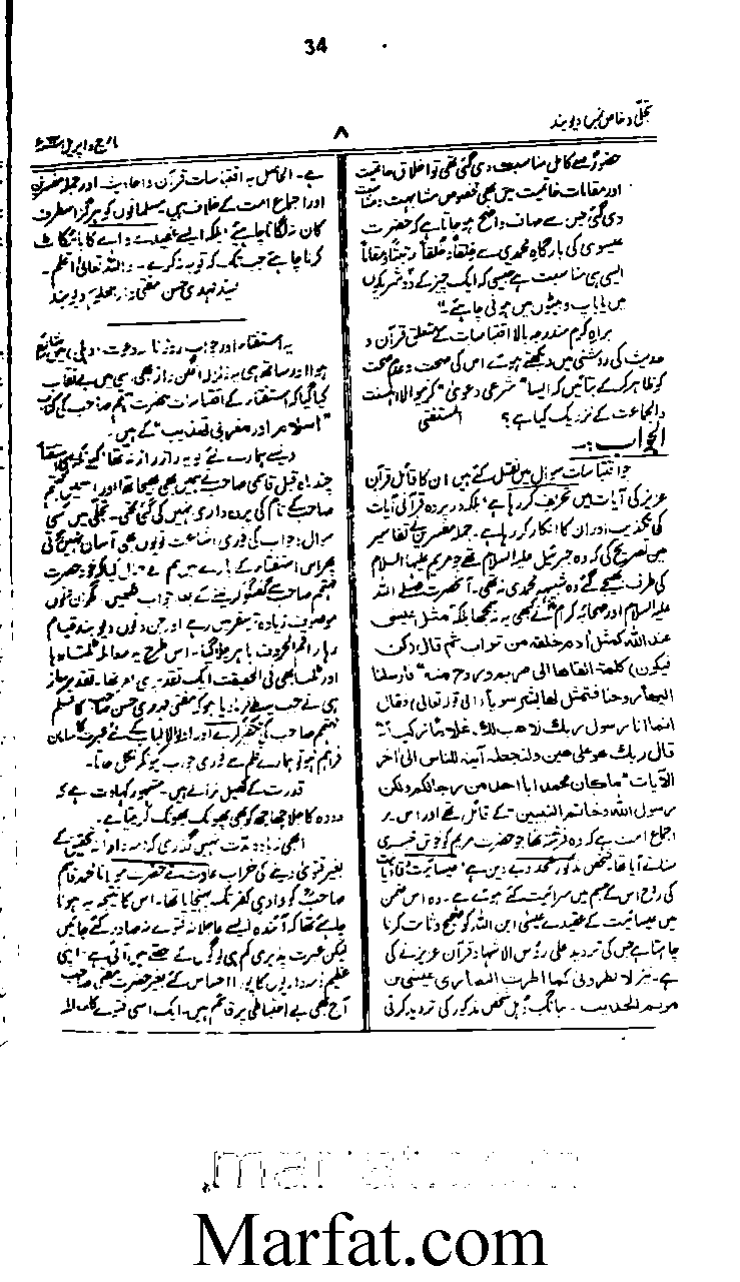 34
تجلی خاص نمبر دیوبند
۸
مارچ و اپریل
حضورؐ سے کامل مناسبت دی گئی تھی تو اخلاق خاتمیت
اور مقامات خاتمیت میں بھی مخصوص مشابہت و مناسبت
دی گئی جس سے صاف واضح ہو جاتا ہے کہ حضرت
عیسوی کی بارگاہ محمدی سے خلقاً و خُلقاً رتبتاً و مقاماً
ایسی ہی مناسبت ہے جیسی کہ ایک چیز کے دو شریکوں
میں یا باپ و بیٹوں میں ہونی چاہئے۔"
براہ کرم مندرجہ بالا اقتباسات کے متعلق قرآن و
حدیث کی روشنی میں دیکھتے ہوئے اس کی صحت و عدم صحت
کو ظاہر کر کے بتائیں کہ ایسا "شرعی دعویٰ" کرنیوالا اہلسنت
والجماعت کے نزدیک کیسا ہے؟ المستفتی
الجواب:۔
جو اقتباسات سوال میں نقل کئے ہیں ان کا قائل قرآن
عزیز کی آیات میں تحریف کر رہا ہے، بلکہ در پردہ قرآنی آیات
کی تکذیب اور ان کا انکار کر رہا ہے۔ جملہ مفسرین نے تفاسیر
میں تصریح کی کہ وہ جبرئیل علیہ السلام تھے جو مریم علیہا السلام
کی طرف بھیجے گئے وہ شبیہ محمدی نہ تھی۔ آنحضرت صلے اللہ
علیہ السلام اور صحابہ کرامؓ نے کبھی یہ نہ سمجھا بلکہ مثل عیسی
عند اللہ کمثل اٰدم خلقه من تراب ثم قال له كن
فیکون) کلمته القاها الی مریم و روح منه" فارسلنا
الیها روحنا فتمثل لها بشرا سویا و قال
انما انا رسول ربك لاهب لك غلاما زكیا
قال ربك هو علی هین ولنجعله اٰیة للناس الی اٰخر
الاٰیات" ما کان محمد ابا احد من رجالکم ولکن
رسول الله وخاتم النبیین" کے قائل تھے اور اس پر
اجماع امت ہے کہ وہ فرشتہ تھا جو حضرت مریم کو خوش خبری
سنانے آیا تھا۔ شخص مذکور ملحد بے دین ہے، عیسائیت و قادیانیت
کی روح اس کے جسم میں سرایت کئے ہوئے ہے۔ وہ اس ضمن
میں عیسائیت کے عقیدے عیسٰی ابن اللہ کو صحیح ثابت کرنا
چاہتا ہے جس کی تردید علی رؤس الاشہاد قرآن عزیز نے کی
ہے۔ نیز لا تطرونی کما اطرت النصاری عیسی بن
مریم الحدیث۔ شخص مذکور کی تردید کرتی
ہے۔ الحاصل یہ اقتباسات قرآن و احادیث اور جملہ مفسرین
اور اجماع امت کے خلاف ہیں۔ مسلمانوں کو ہرگز اس طرف
کان نہ لگانا چاہئے، بلکہ ایسے عقیدے والے کا بائیکاٹ
کرنا چاہئے جب تک کہ توبہ نہ کرے۔ واللہ تعالیٰ اعلم۔
سید مہدی حسن مفتی دارالعلوم دیوبند
یہ استفتاء اور جواب روزنامہ دعوت (دہلی) میں شائع
ہوا اور ساتھ ہی یہ زلزلہ افگن راز بھی اسی میں بے نقاب
کیا گیا کہ استفتاء کے اقتباسات حضرت مہتمم صاحب کی کتاب
"اسلام اور مغربی تہذیب" کے ہیں۔
ویسے ہمارے لئے تو یہ راز راز نہ تھا کیونکہ یہ استفتا
چند ماہ قبل قاسمی صاحب نے ہمیں بھی بھیجا تھا اور اس میں مہتمم
صاحب کے نام کی پردہ داری نہیں کی گئی تھی۔ تجلی میں کسی
سوال و جواب کی فوری اشاعت یوں بھی آسان نہیں ہوتی
پھر اس استفتاء کے بارے میں ہم نے خیال کیا کہ خود حضرت
مہتمم صاحب سے گفتگو کر لینے کے بعد جواب لکھیں، مگر ان دنوں
موصوف زیادہ تر سفر میں رہے اور جن دنوں دیوبند قیام
رہا راقم الحروف باہر چلا گیا۔ اس طرح یہ معاملہ ٹلتا رہا
اور ٹلنا بھی فی الحقیقت ایک تقدیری امر تھا۔ تقدیر ساز
ہی نے جب طے فرما دیا ہو کہ مفتی مہدی حسن صاحب کا قلم
مہتمم صاحب کی تکفیر کرے اور اولوالالباب کے لئے عبرت کا سامان
فراہم ہو تو ہمارے قلم سے فوری جواب کیونکر نکل جاتا۔
قدرت کے کھیل نرالے ہیں۔ مشہور کہاوت ہے کہ
دودھ کا جلا چھاچھ کو بھی پھونک پھونک کر پیتا ہے۔
ابھی زیادہ مدت نہیں گذری کہ آزادانہ تحقیق کے
بغیر فتویٰ دینے کی خراب عادت نے حضرت مولانا محمد قاسم
صاحبؒ کو وادی کفر تک پہنچایا تھا۔ اس کا نتیجہ یہ ہونا
چاہئے تھا کہ آئندہ ایسے عاجلانہ فتوے نہ صادر کئے جائیں
لیکن عبرت پذیری کم ہی لوگوں کے حصے میں آئی ہے۔ اپنی
عظیم ذمہ داریوں کا پورا احساس کئے بغیر حضرت مفتی صاحب
آج بھی بے احتیاطی پر قائم ہیں۔ ایک اسی فتوے کا
marfat.com
Marfat.com